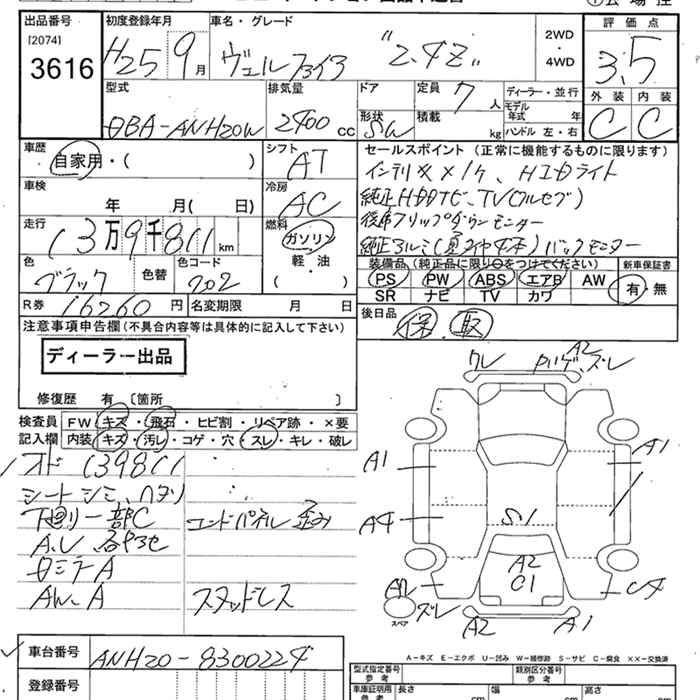 出品番号 初度登録年月 車名・グレード 2WD 評価点
[2074] H25 9月 ヴェルファイア "2.4Z" ・
3616 4WD 3.5
型式 排気量 ドア 定員 7人 ディーラー・並行 外装 内装
DBA-ANH20W 2400cc 形状 SW 積載 kg モデル年式 年 C C
ハンドル 左・右
車歴 シフト セールスポイント (正常に機能するものに限ります)
自家用・( ) AT インテリキー×1ケ、HIDライト
車検 冷房 純正HDDナビ、TV(フルセグ)
年 月( 日) AC 後席フリップダウンモニター
走行 燃料 純正アルミ(夏タイヤ4本)バックモニター
13万9千811km ガソリン 装備品 (純正品に限り○をつけてください) 新車保証書
色 色替 色コード 軽・油 PS PW ABS エアB AW 有・無
ブラック 202 ( ・ ) SR ナビ TV カワ
R券 16260円 名変期限 月 日 後日品 保・取
注意事項申告欄 (不具合内容等は具体的に記入して下さい)
ディーラー出品
修復歴 有 〔箇所 〕
検査員 FW キズ・飛石・ヒビ割・リペア跡・×要
記入欄 内装 キズ・汚レ・コゲ・穴・スレ・キレ・破レ
ワレ A2 ズレ
オド 139811
シートシミ、ヘタリ
下廻り一部C エンドパネル歪み
A.U 各ヤセ
AW.A スタッドレス
A1 A1
A4 S1
A2
C1
ズレ
スペア A2 A1
車台番号 ANH20-8300224
登録番号
A-キズ E-エクボ U-凹み W-補修跡 S-サビ C-腐食 ××-交換済
型式指定番号 類別区分番号
参考 参考
車庫証明用 長さ 幅 高さ
参考 cm cm cm